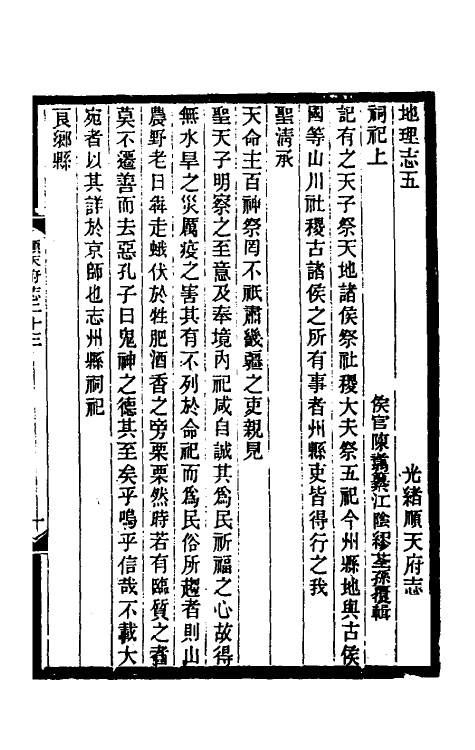 地理志五
光緒順天府志
祠祀上
侯官陳翥纂江陰繆荃孫覆輯
記有之天子祭天地諸侯祭社稷大夫祭五祀今州縣地與古侯
國等山川社稷古諸侯之所有事者州縣吏皆得行之我
聖清承
天命主百神祭罔不祇肅畿疆之吏親見
聖天子明察之至意及奉境內祀咸自誠其爲民祈福之心故得
無水旱之災厲疫之害其有不列於命祀而爲民俗所趨者則山
農野老日犇走蛾伏於牲肥酒香之旁栗栗然時若有臨質之者
莫不遷善而去惡孔子曰鬼神之德其至矣乎嗚乎信哉不載大
宛者以其詳於京師也志州縣祠祀
良鄉縣
順天府志二十三